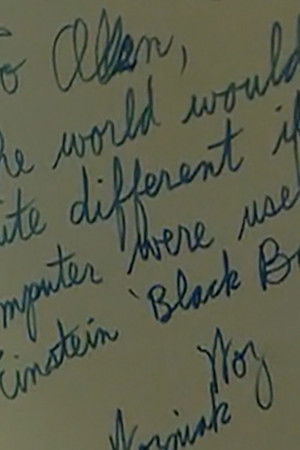 o Allen,
he world would
ite different if
mputer were use
Einstein 'Black B
Woz
Wozniak